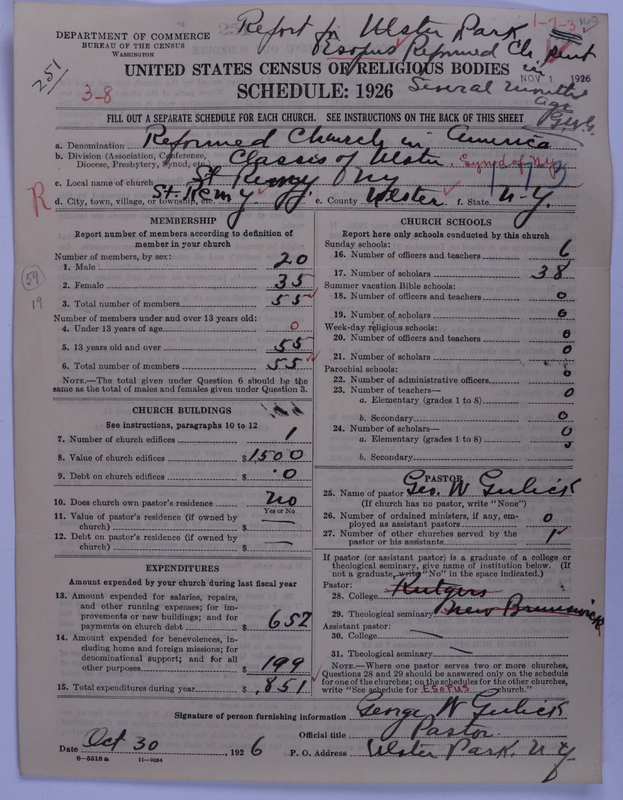 Report for Ulster Park
1-7-3
DEPARTMENT OF COMMERCE
BUREAU OF THE CENSUS
WASHINGTON
Esopus Reformed Ch, sent in
251
UNITED STATES CENSUS OF RELIGIOUS BODIES
NOV 1 1926
3-8
SCHEDULE: 1926
Several months ago
G.W.G.
FILL OUT A SEPARATE SCHEDULE FOR EACH CHURCH. SEE INSTRUCTIONS ON THE BACK OF THIS SHEET
a. Denomination Reformed Church in America
b. Division (Association, Conference, Diocese, Presbytery, Synod, etc.) Classis of Ulster, Synod of N.Y.
c. Local name of church St Remy NY
R
d. City, town, village, or township, etc. St. Remy e. County Ulster f. State N-Y.
MEMBERSHIP
Report number of members according to definition of
member in your church
Number of members, by sex:
1. Male 20
2. Female 35
3. Total number of members 55
59
19
Number of members under and over 13 years old:
4. Under 13 years of age 0
5. 13 years old and over 55
6. Total number of members 55
NOTE.—The total given under Question 6 should be the
same as the total of males and females given under Question 3.
CHURCH BUILDINGS
See instructions, paragraphs 10 to 12
7. Number of church edifices 1
8. Value of church edifices $1500
9. Debt on church edifices $ 0
10. Does church own pastor's residence no
Yes or No
11. Value of pastor's residence (if owned by
church) $ —
12. Debt on pastor's residence (if owned by
church) $ —
EXPENDITURES
Amount expended by your church during last fiscal year
13. Amount expended for salaries, repairs,
and other running expenses; for im-
provements or new buildings; and for
payments on church debt $ 652
14. Amount expended for benevolences, in-
cluding home and foreign missions; for
denominational support; and for all
other purposes $ 199
15. Total expenditures during year $ 851
CHURCH SCHOOLS
Report here only schools conducted by this church
Sunday schools:
16. Number of officers and teachers 6
17. Number of scholars 38
Summer vacation Bible schools:
18. Number of officers and teachers 0
19. Number of scholars 0
Week-day religious schools:
20. Number of officers and teachers 0
21. Number of scholars 0
Parochial schools:
22. Number of administrative officers 0
23. Number of teachers—
a. Elementary (grades 1 to 8) 0
b. Secondary 0
24. Number of scholars—
a. Elementary (grades 1 to 8) 0
b. Secondary 0
PASTOR
25. Name of pastor Geo. W Gulick
(If church has no pastor, write "None")
26. Number of ordained ministers, if any, em-
ployed as assistant pastors 0
27. Number of other churches served by the
pastor or his assistants 1
If pastor (or assistant pastor) is a graduate of a college or
theological seminary, give name of institution below. (If
not a graduate, write "No" in the space indicated.)
Pastor:
28. College Rutgers
29. Theological seminary New Brunswick
Assistant pastor:
30. College —
31. Theological seminary —
NOTE.—Where one pastor serves two or more churches,
Questions 28 and 29 should be answered only on the schedule
for one of the churches; on the schedules for the other churches,
write "See schedule for ESOPUS church."
Signature of person furnishing information George W Gulick
Official title Pastor
Date Oct 30, 1926 P. O. Address Ulster Park, N Y
8—5518a 11—9054